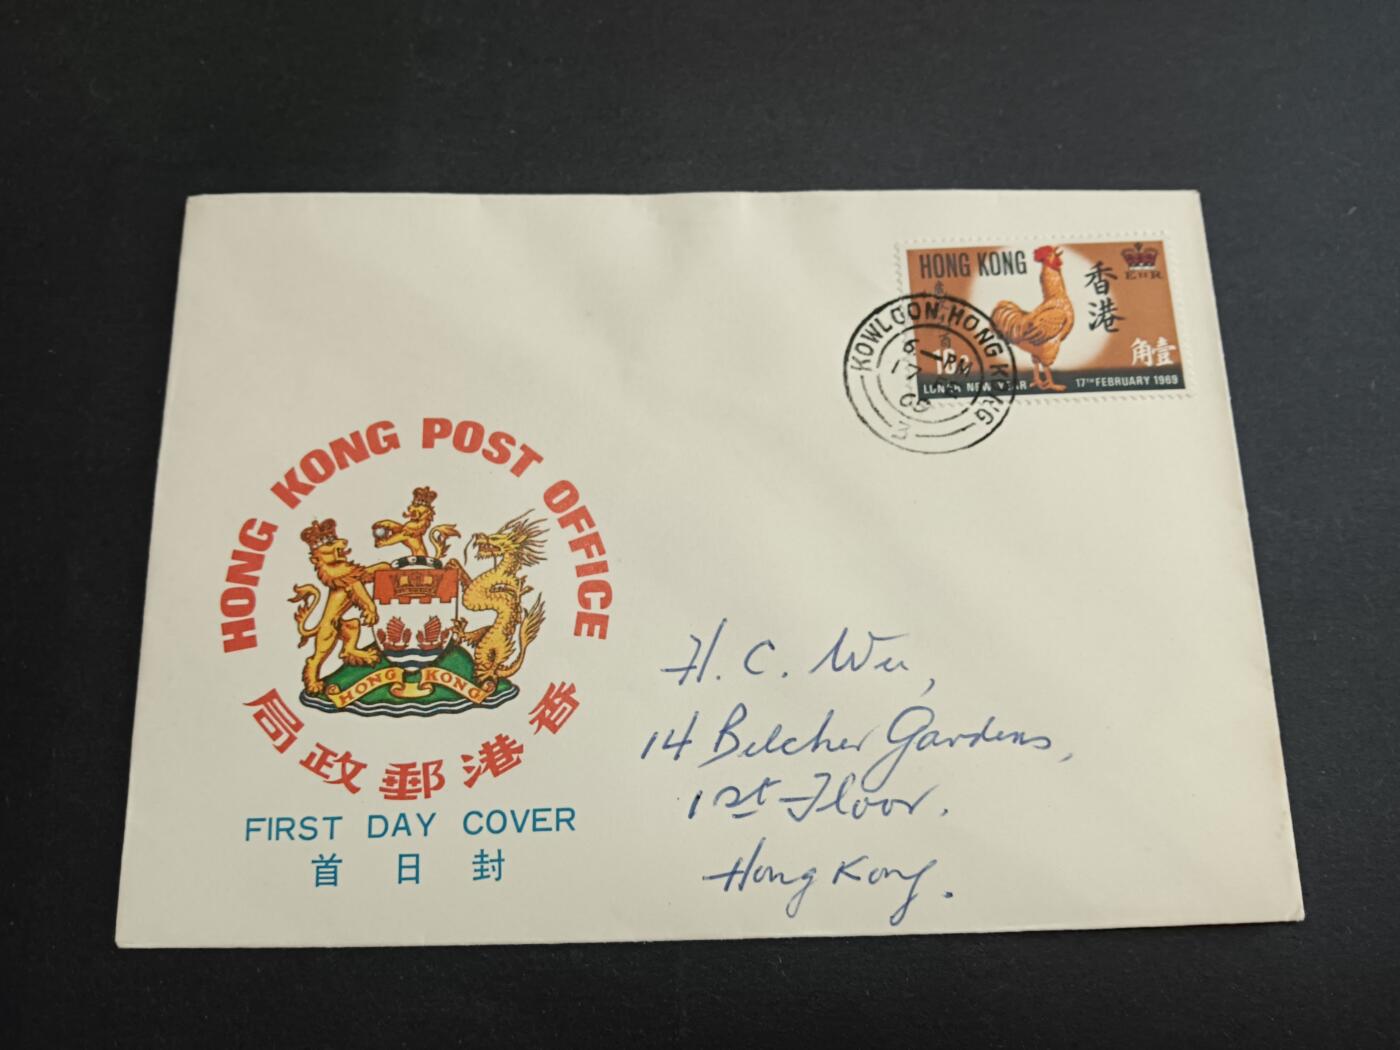 HONG KONG
香港
E II R
10c
壹角
LUNAR NEW YEAR
17TH FEBRUARY 1969
KOWLOON, HONG KONG
6 PM
17 FE
69
3
HONG KONG POST OFFICE
HONG KONG
香港郵政局
FIRST DAY COVER
首日封
H. C. Wu,
14 Belcher Gardens,
1st Floor.
Hong Kong.